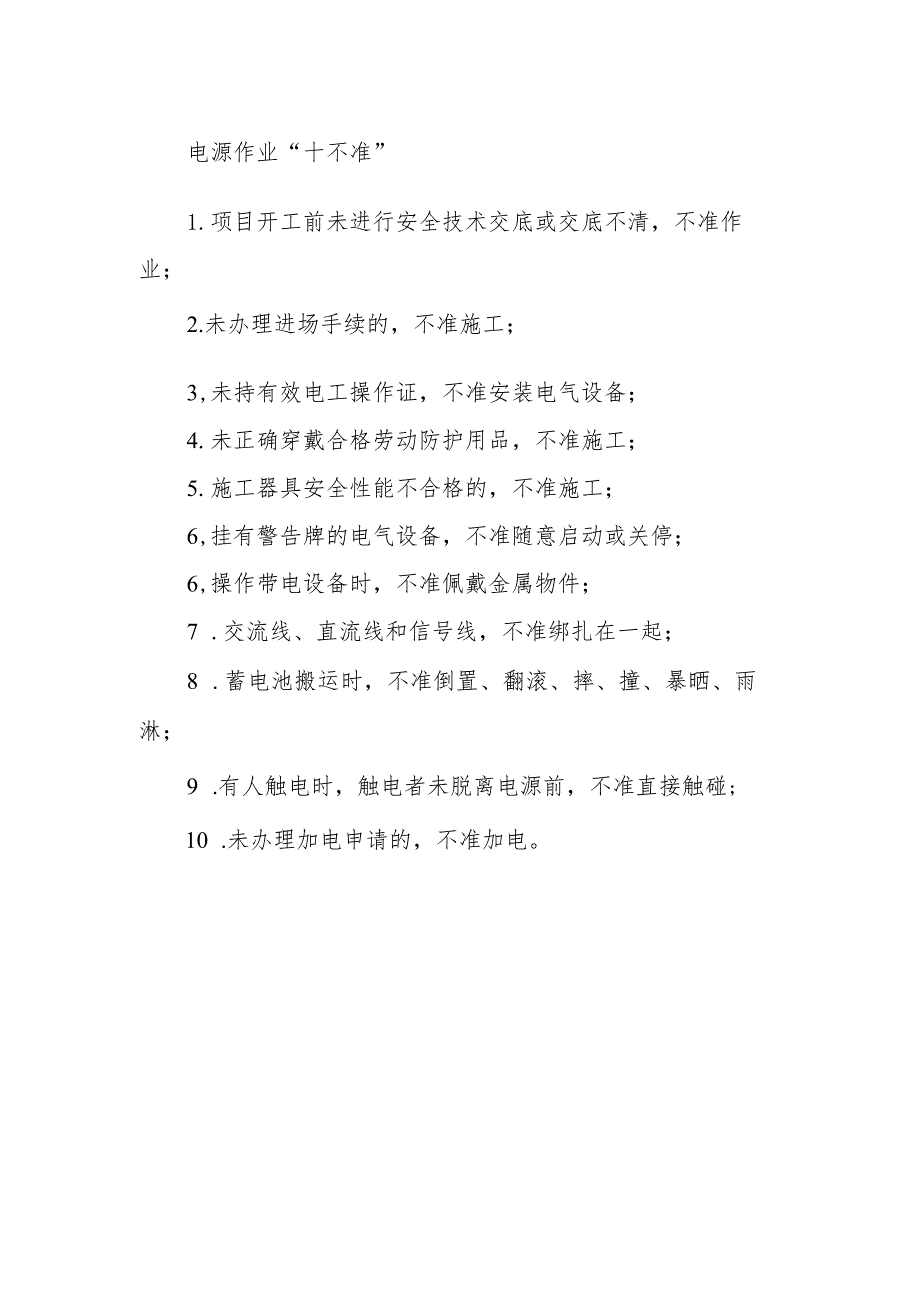 电源作业“十不准”
1. 项目开工前未进行安全技术交底或交底不清，不准作
业；
2.未办理进场手续的，不准施工；
3,未持有效电工操作证，不准安装电气设备；
4. 未正确穿戴合格劳动防护用品，不准施工；
5. 施工器具安全性能不合格的，不准施工；
6,挂有警告牌的电气设备，不准随意启动或关停；
6,操作带电设备时，不准佩戴金属物件；
7 . 交流线、直流线和信号线，不准绑扎在一起；
8 . 蓄电池搬运时，不准倒置、翻滚、摔、撞、暴晒、雨
淋；
9 .有人触电时，触电者未脱离电源前，不准直接触碰；
10 .未办理加电申请的，不准加电。